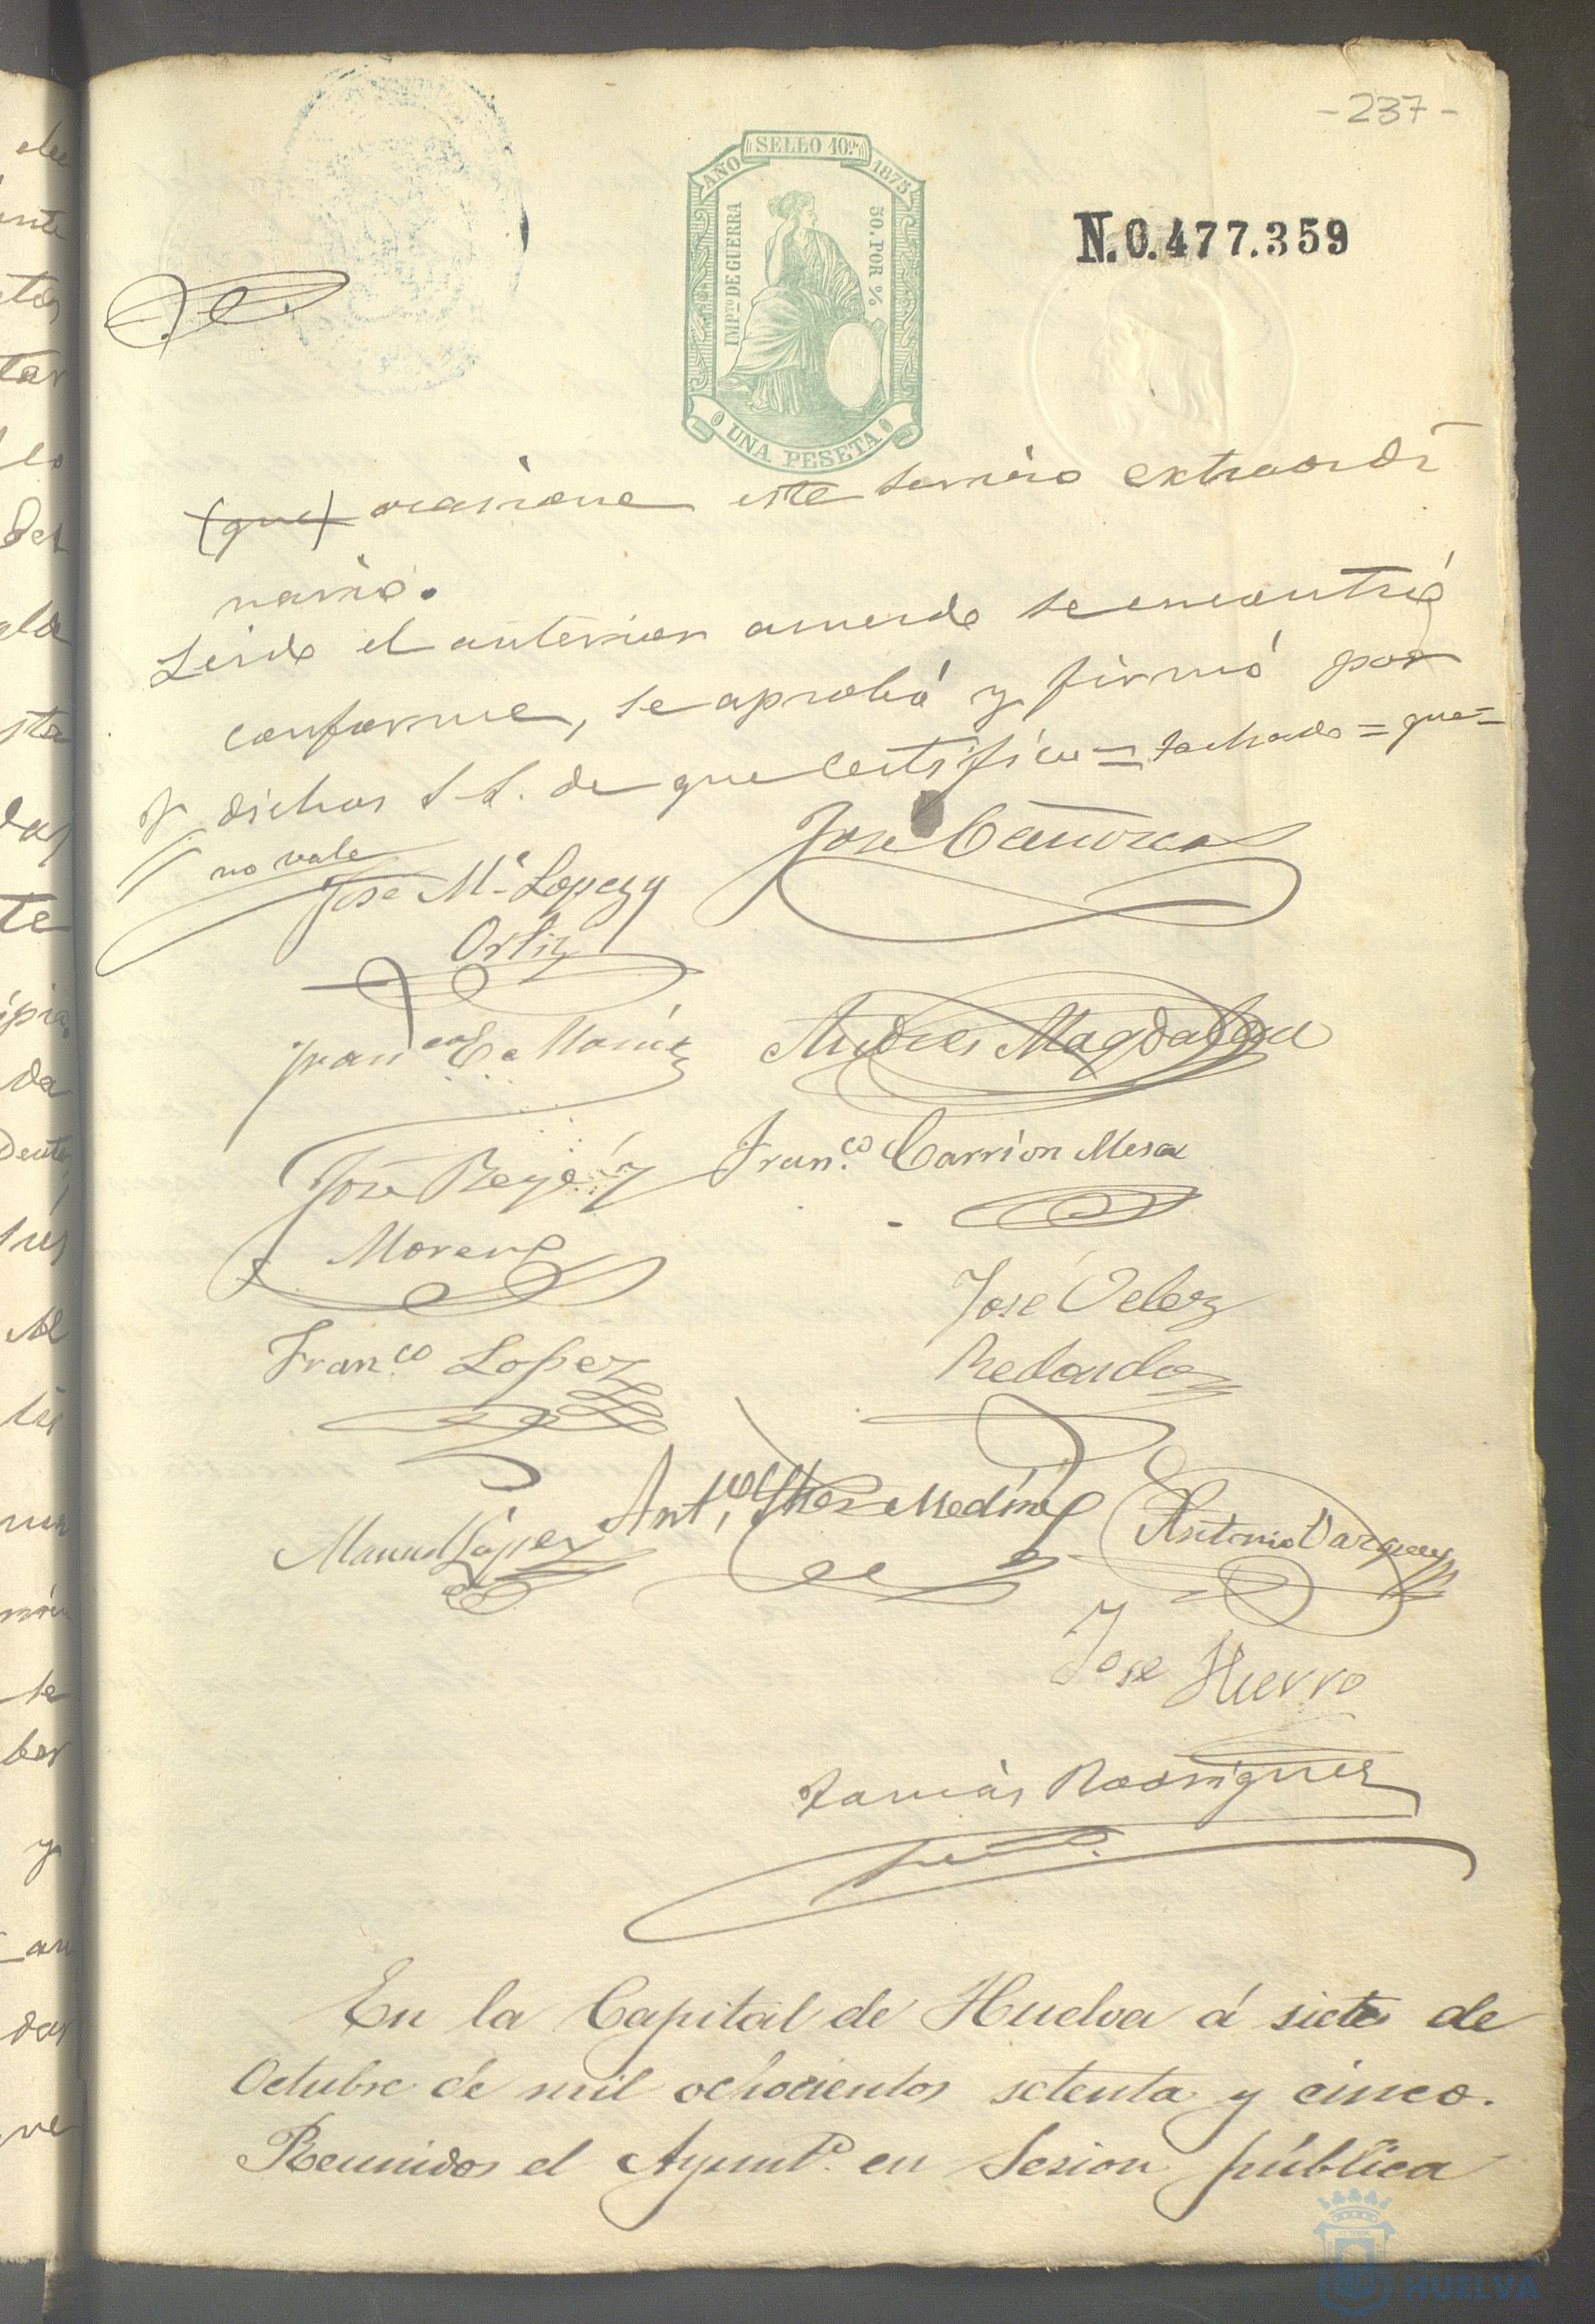 -237-
SELLO 10º
AÑO 1875
IMPTO DE GUERRA
50. POR %
UNA PESETA
N.0.477.359
(que) ocasione este servicio extraordi
nario.
Leido el anterior acuerdo se encontró
conforme, se aprobó y firmó por
dichos S. S. de que certifico = tachado = que =
no vale
José Cañorca
José Mª Lopez y
Ortiz
Andres Magdalena
José
Moreno
Franco Carrion Mesa
José Velez
Redondo
Franco Lopez
Manuel López
Antº Medina
Antonio Vazquez
Jose Hierro
Tomás Rodriguez
En la Capital de Huelva á siete de
Octubre de mil ochocientos setenta y cinco.
Reunidos el Ayuntº en Sesion pública
HUELVA